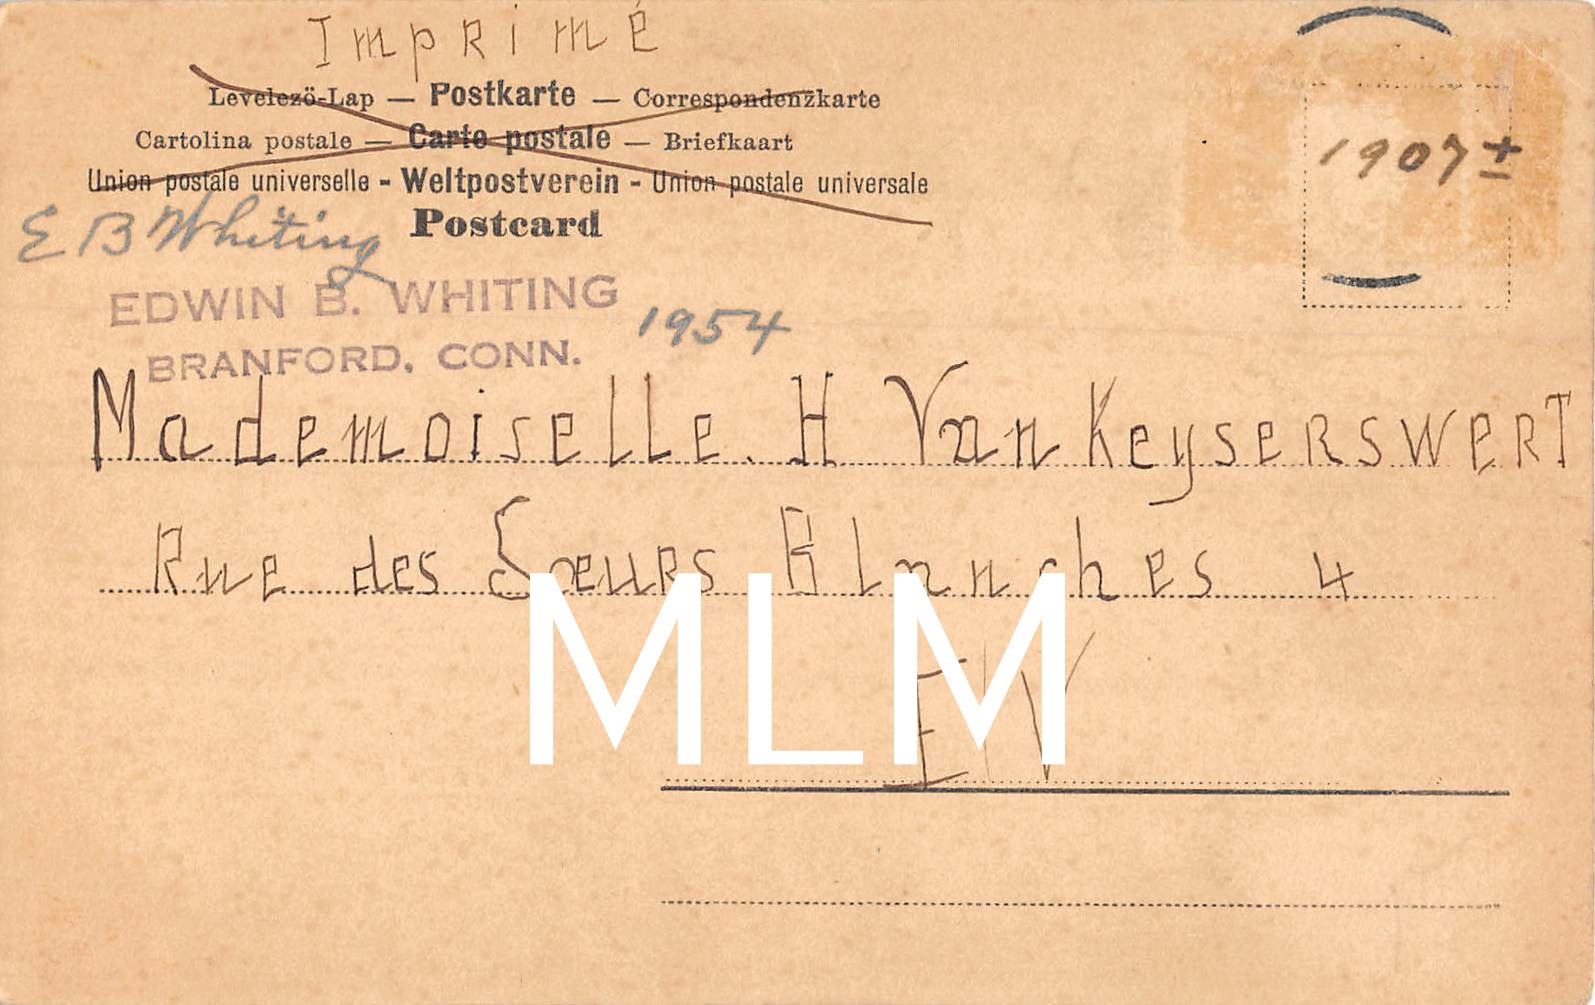 Imprimé
Levelezö-Lap — Postkarte — Correspondenzkarte
Cartolina postale — Carte postale — Briefkaart
Union postale universelle - Weltpostverein - Union postale universale
Postcard
1907 ±
E B Whiting
EDWIN B. WHITING
BRANFORD, CONN.
1954
Mademoiselle. H Van KeyserswerT
Rue des Sœurs Blanches 4
E V
MLM